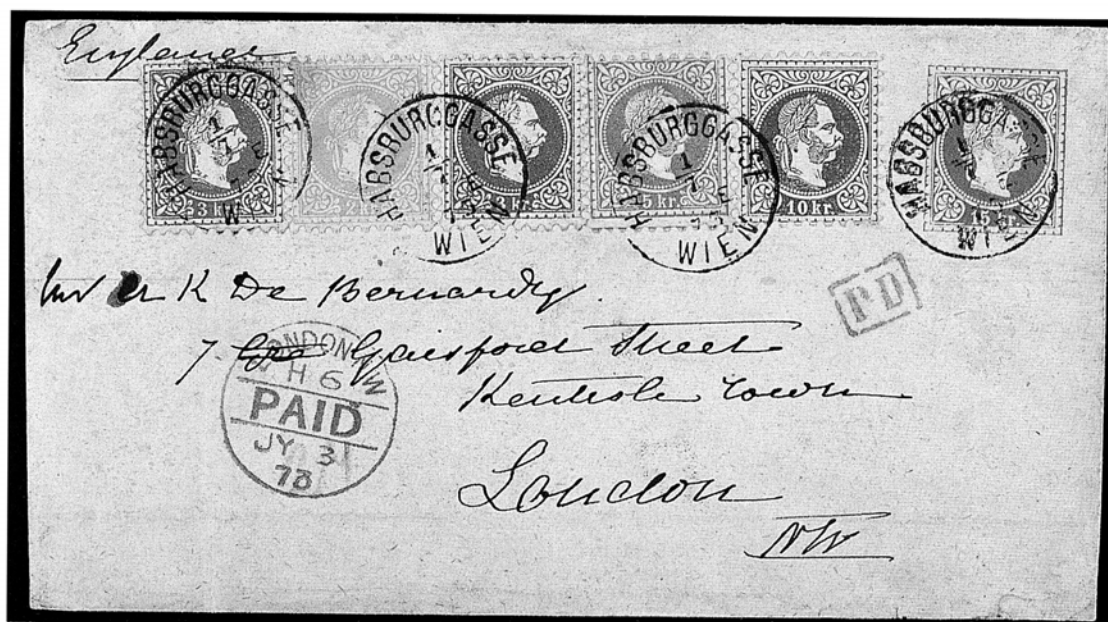 England
HABSBURGGASSE 1/7 WIEN
3 kr.
2 kr.
HABSBURGGASSE 1/7 WIEN
3 kr.
5 kr.
HABSBURGGASSE 1/7 WIEN
10 kr.
HABSBURGGASSE WIEN
15 kr.
K De Bernardy.
PD
7 Gaisford Street
Kentish Town
London
NW
LONDON N.W
H 6
PAID
JY 3
73